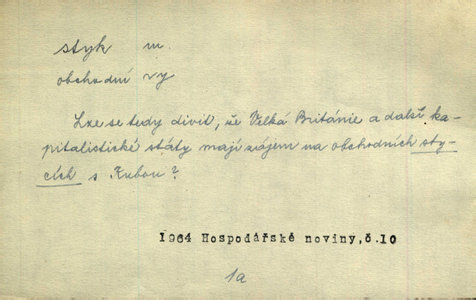 styk m.
obchodní ry
Lze se tedy divit, že Velká Británie a další ka-
pitalistické státy mají zájem na obchodních sty-
cích s Kubou?
1964 Hospodářské noviny,č.10
1a